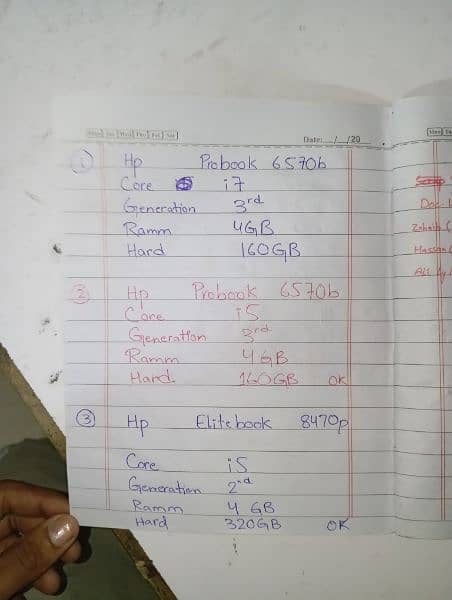 Date: / /20
① Hp Probook 6570b
Core i7
Generation 3rd
Ramm 4GB
Hard 160GB
② Hp Probook 6570b
Core i5
Generation 3rd
Ramm 4GB
Hard 160GB OK
③ Hp Elitebook 8470p
Core i5
Generation 2nd
Ramm 4 GB
Hard 320GB OK
Hassan